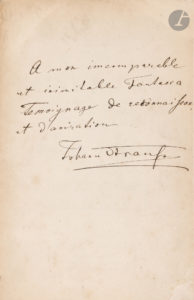 A mon incomparable
et inimitable Fantasca
Temoignage de reconnaissance
et d'amiration
Johann Strauss